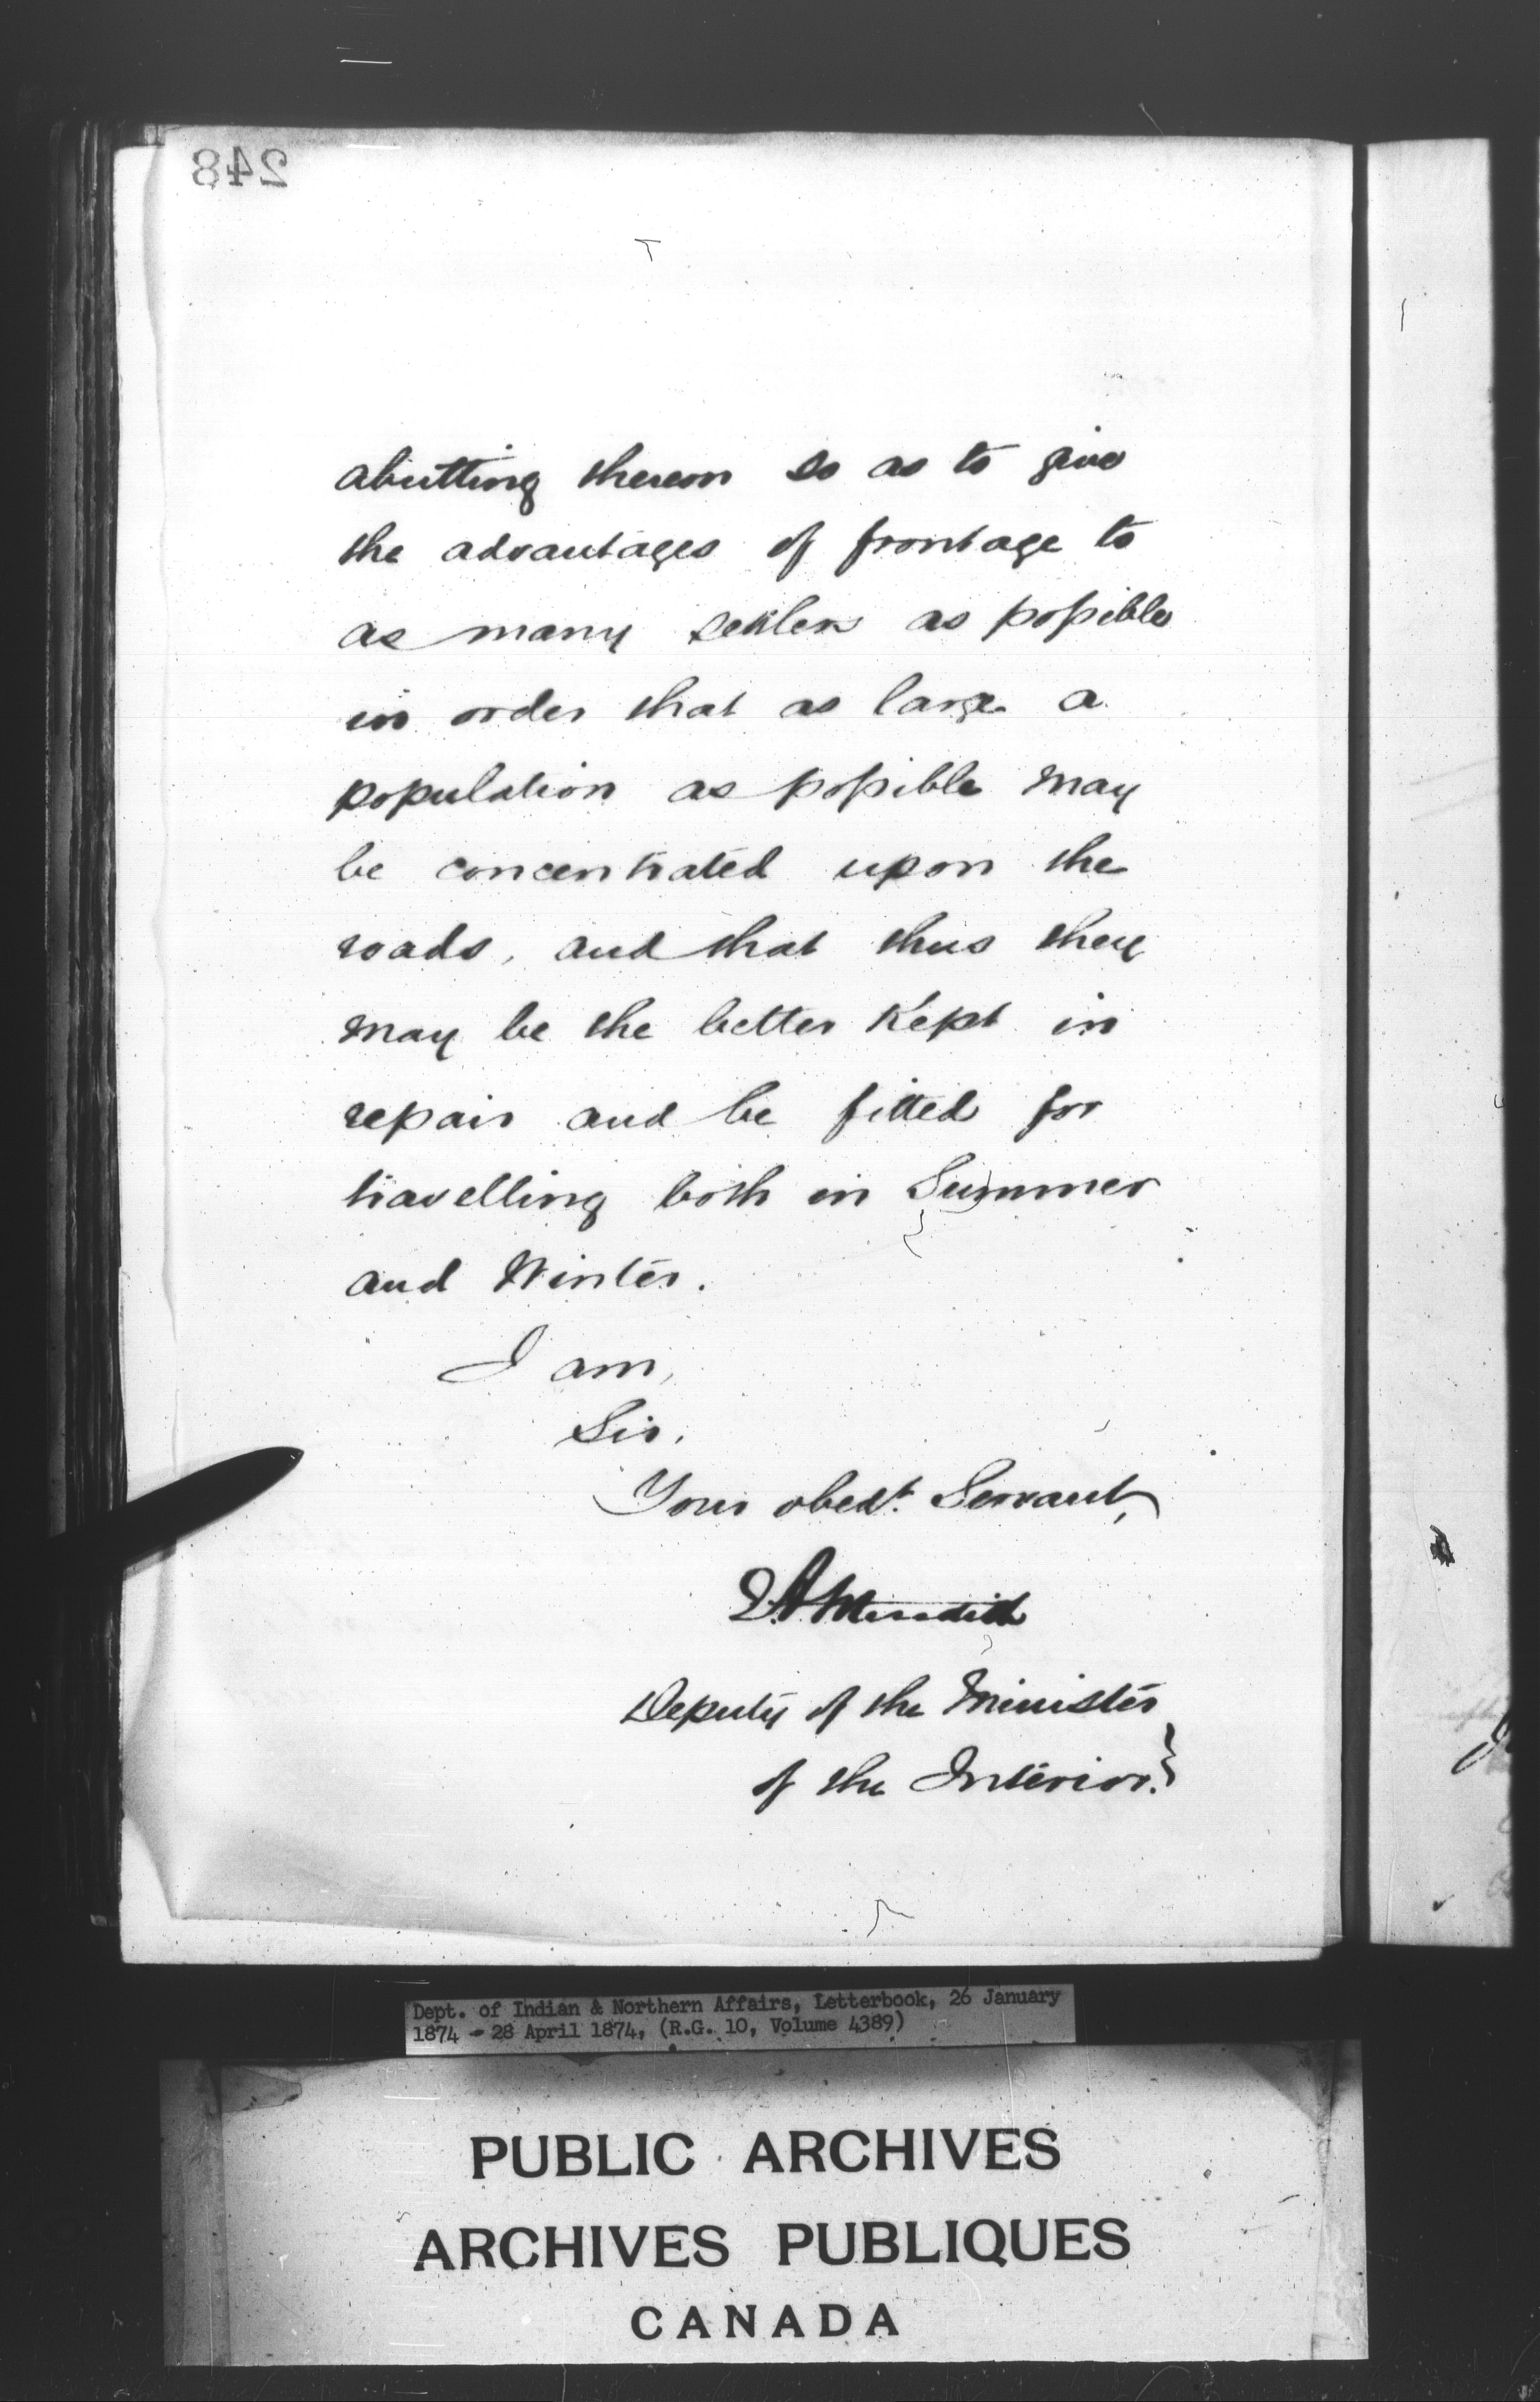 248
abutting thereon so as to give
the advantages of frontage to
as many settlers as possible
in order that as large a
population as possible may
be concentrated upon the
roads, and that thus they
may be the better Kept in
repair and be fitted for
travelling both in Summer
and Winter.
I am,
Sir,
Your obedt. Servant,
E.A. Meredith
Deputy of the Minister
of the Interior. }
Dept. of Indian & Northern Affairs, Letterbook, 26 January
1874 - 28 April 1874, (R.G. 10, Volume 4389)
PUBLIC ARCHIVES
ARCHIVES PUBLIQUES
CANADA